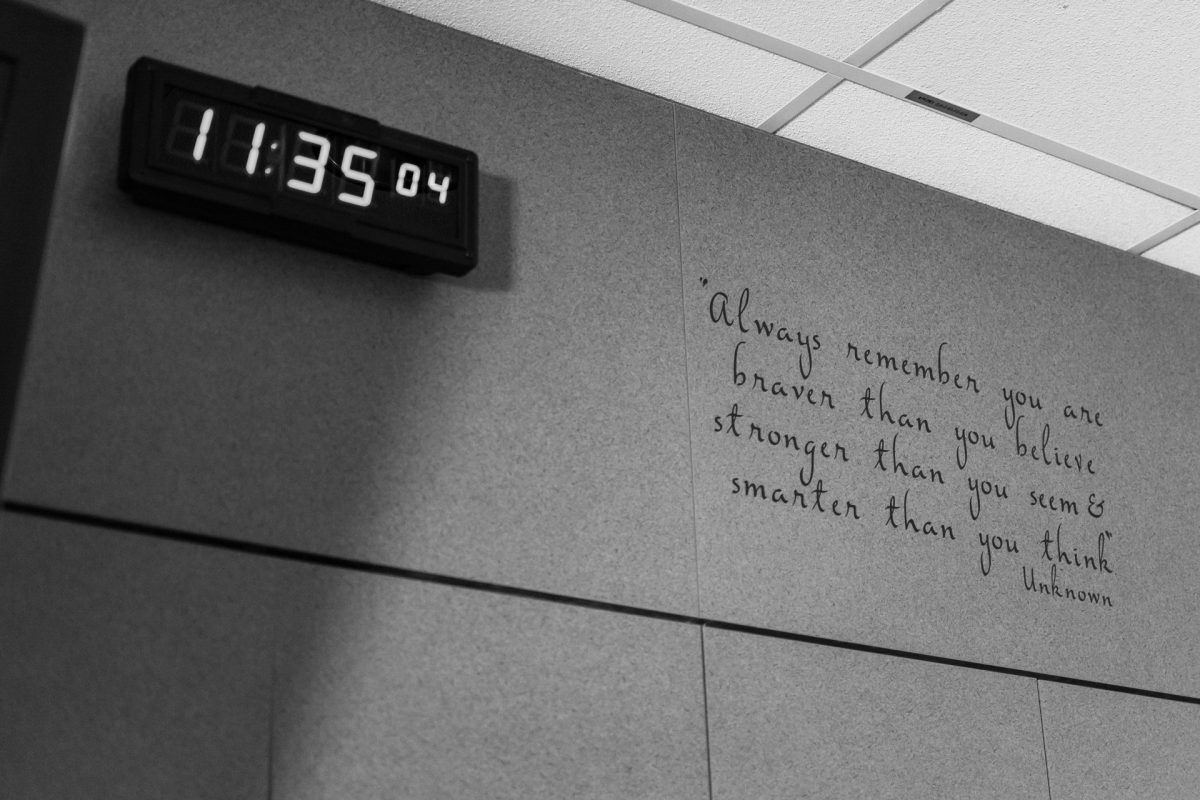 11:35 04
"Always remember you are
braver than you believe
stronger than you seem &
smarter than you think"
Unknown